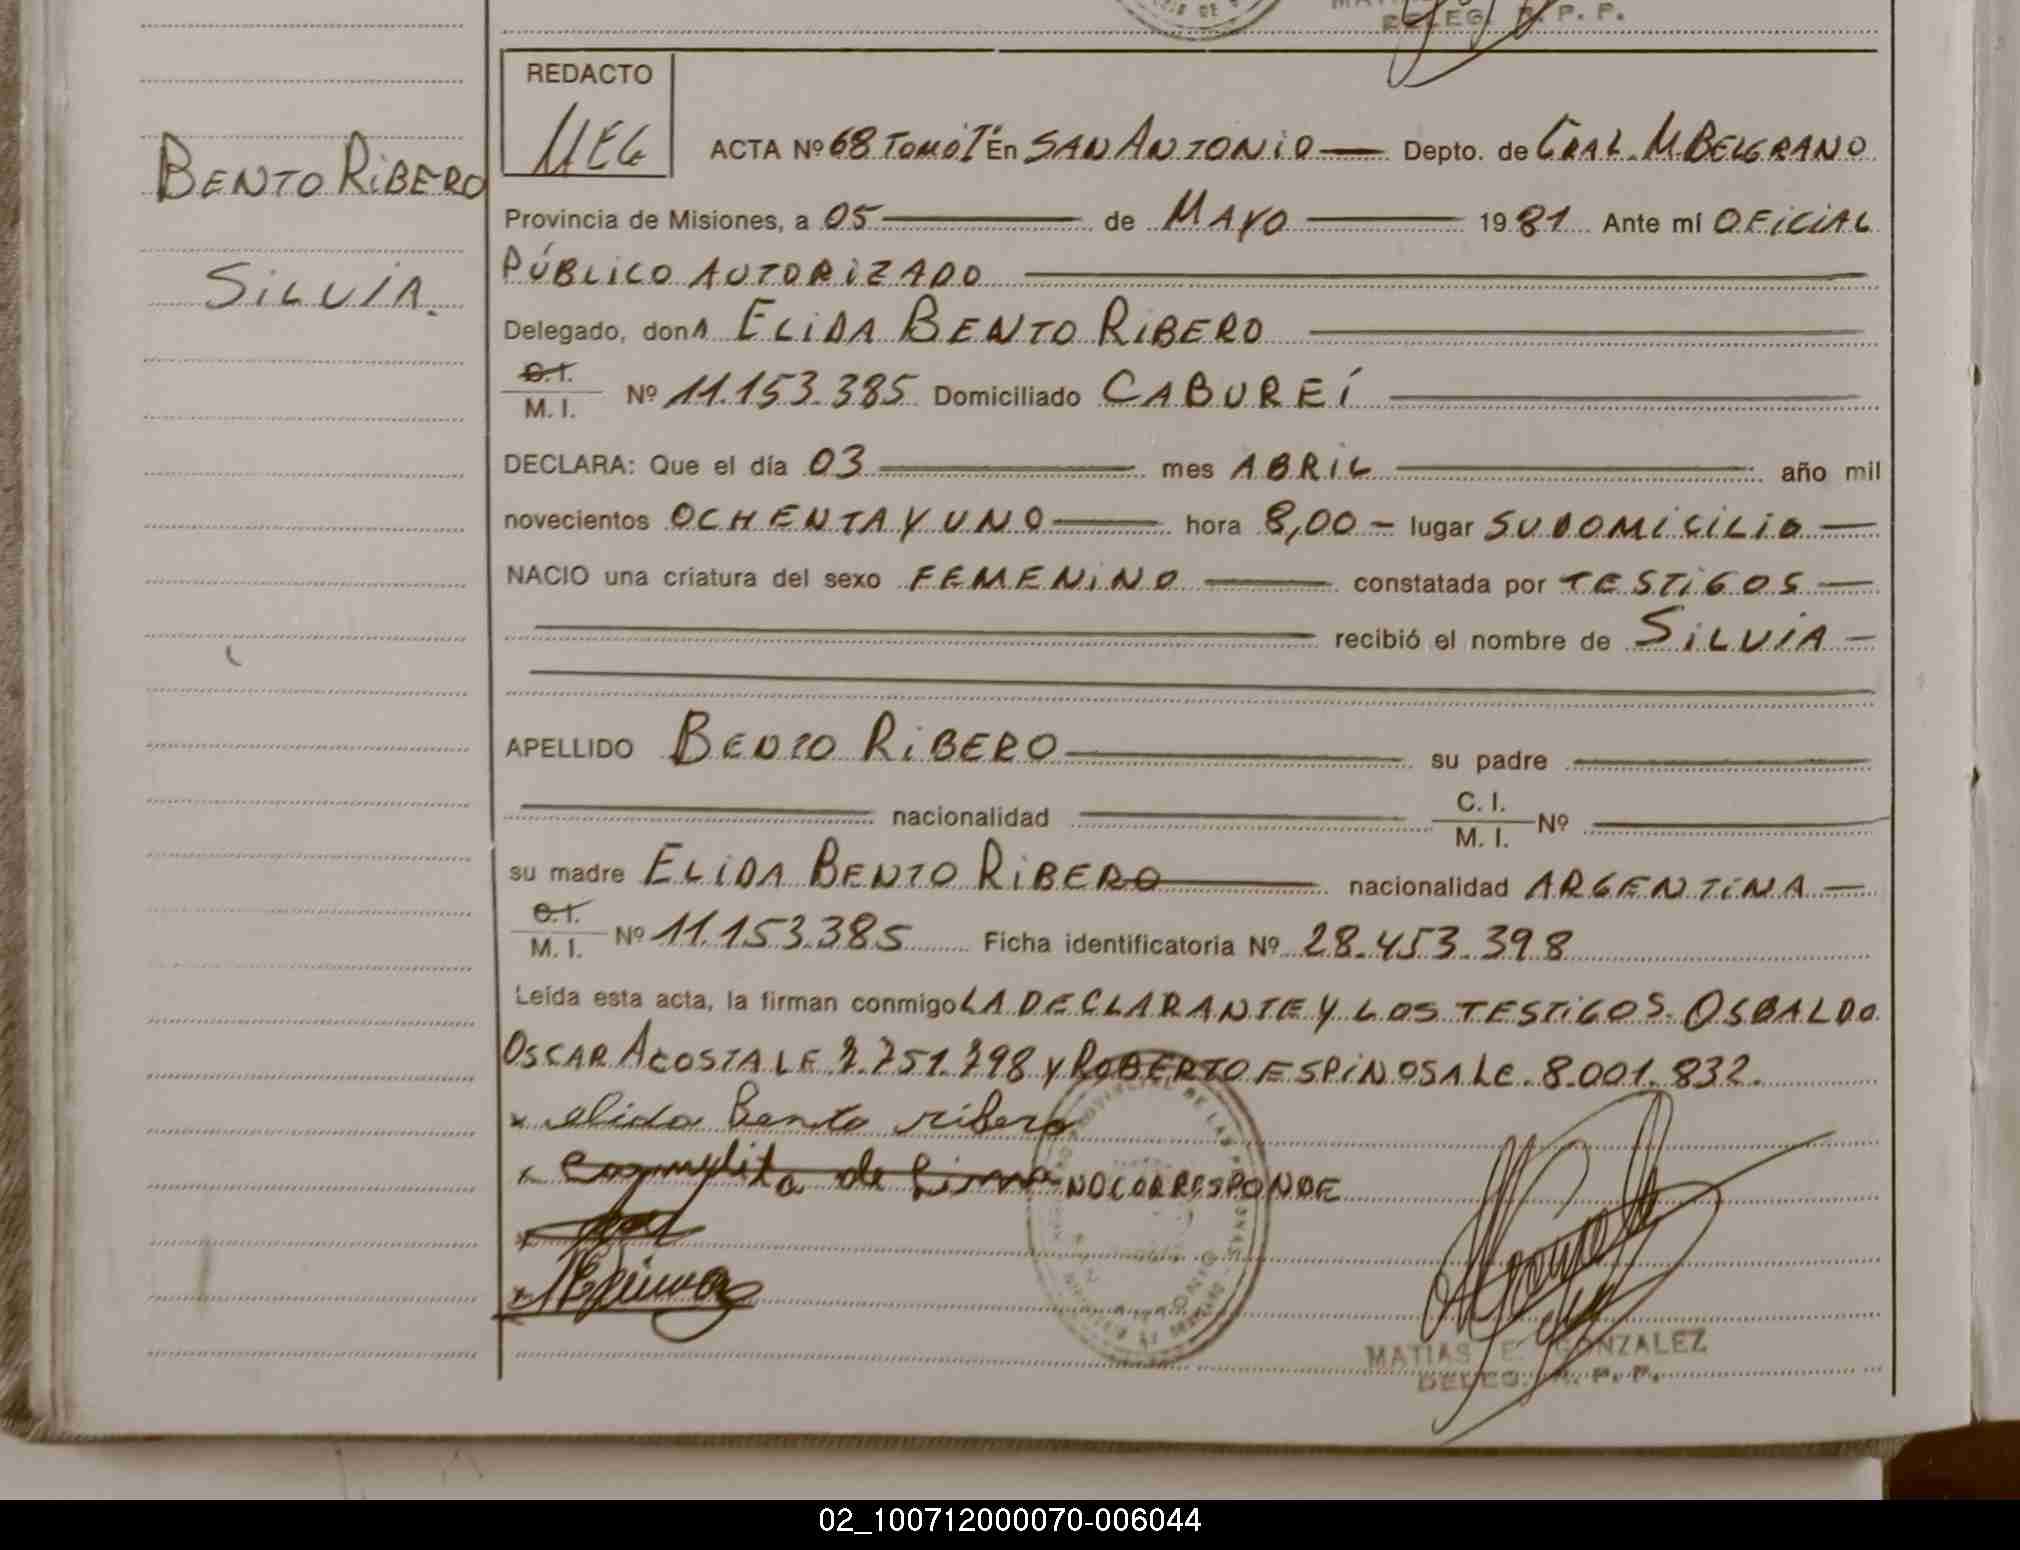 DELEG. R. P. P.
REDACTO
MEG
BENTO RIBERO
SILVIA.
ACTA Nº 68 TOMO I En SAN ANTONIO Depto. de GRAL. M. BELGRANO
Provincia de Misiones, a 05 de MAYO 1981 Ante mí OFICIAL
PÚBLICO AUTORIZADO
Delegado, donA ELIDA BENTO RIBERO
C.I.
M. I. Nº 11.153.385 Domiciliado CABUREÍ
DECLARA: Que el día 03 mes ABRIL año mil
novecientos OCHENTA Y UNO hora 8,00 lugar SU DOMICILIO
NACIO una criatura del sexo FEMENINO constatada por TESTIGOS
recibió el nombre de SILVIA
APELLIDO BENTO RIBERO su padre
nacionalidad C. I.
M. I. Nº
su madre ELIDA BENTO RIBERO nacionalidad ARGENTINA
C.I.
M. I. Nº 11.153.385 Ficha identificatoria Nº 28.453.398
Leída esta acta, la firman conmigo LA DECLARANTE Y LOS TESTIGOS. OSBALDO
OSCAR ACOSTA LE 7.751.798 Y ROBERTO ESPINOSA LE. 8.001.832.
x elida Bento ribero
de Lima NO CORRESPONDE
MATIAS E. GONZALEZ
DELEG. R. P. P.
02_100712000070-006044